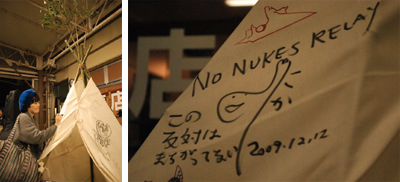 店
店
NO NUKES RELAY
この
反対は
まちがってない 2009.12.12